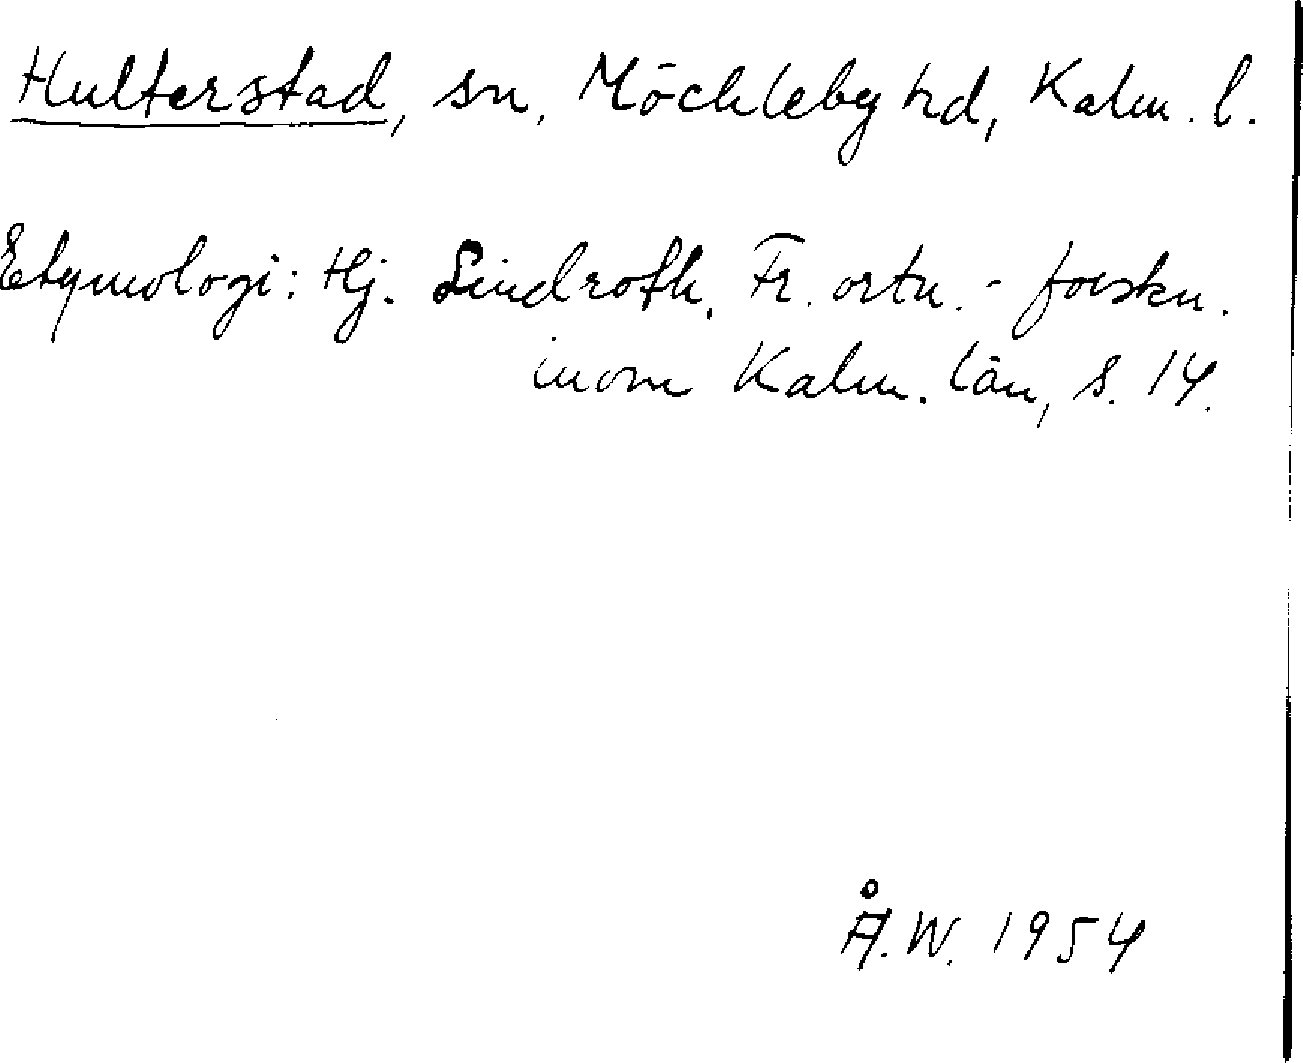 Hulterstad, sn, Möckleby hd, Kalm. l.
Etymologi: Hj. Lindroth, Fr. ortn.-forskn.
inom Kalm. län, s. 14.
Å.W. 1954